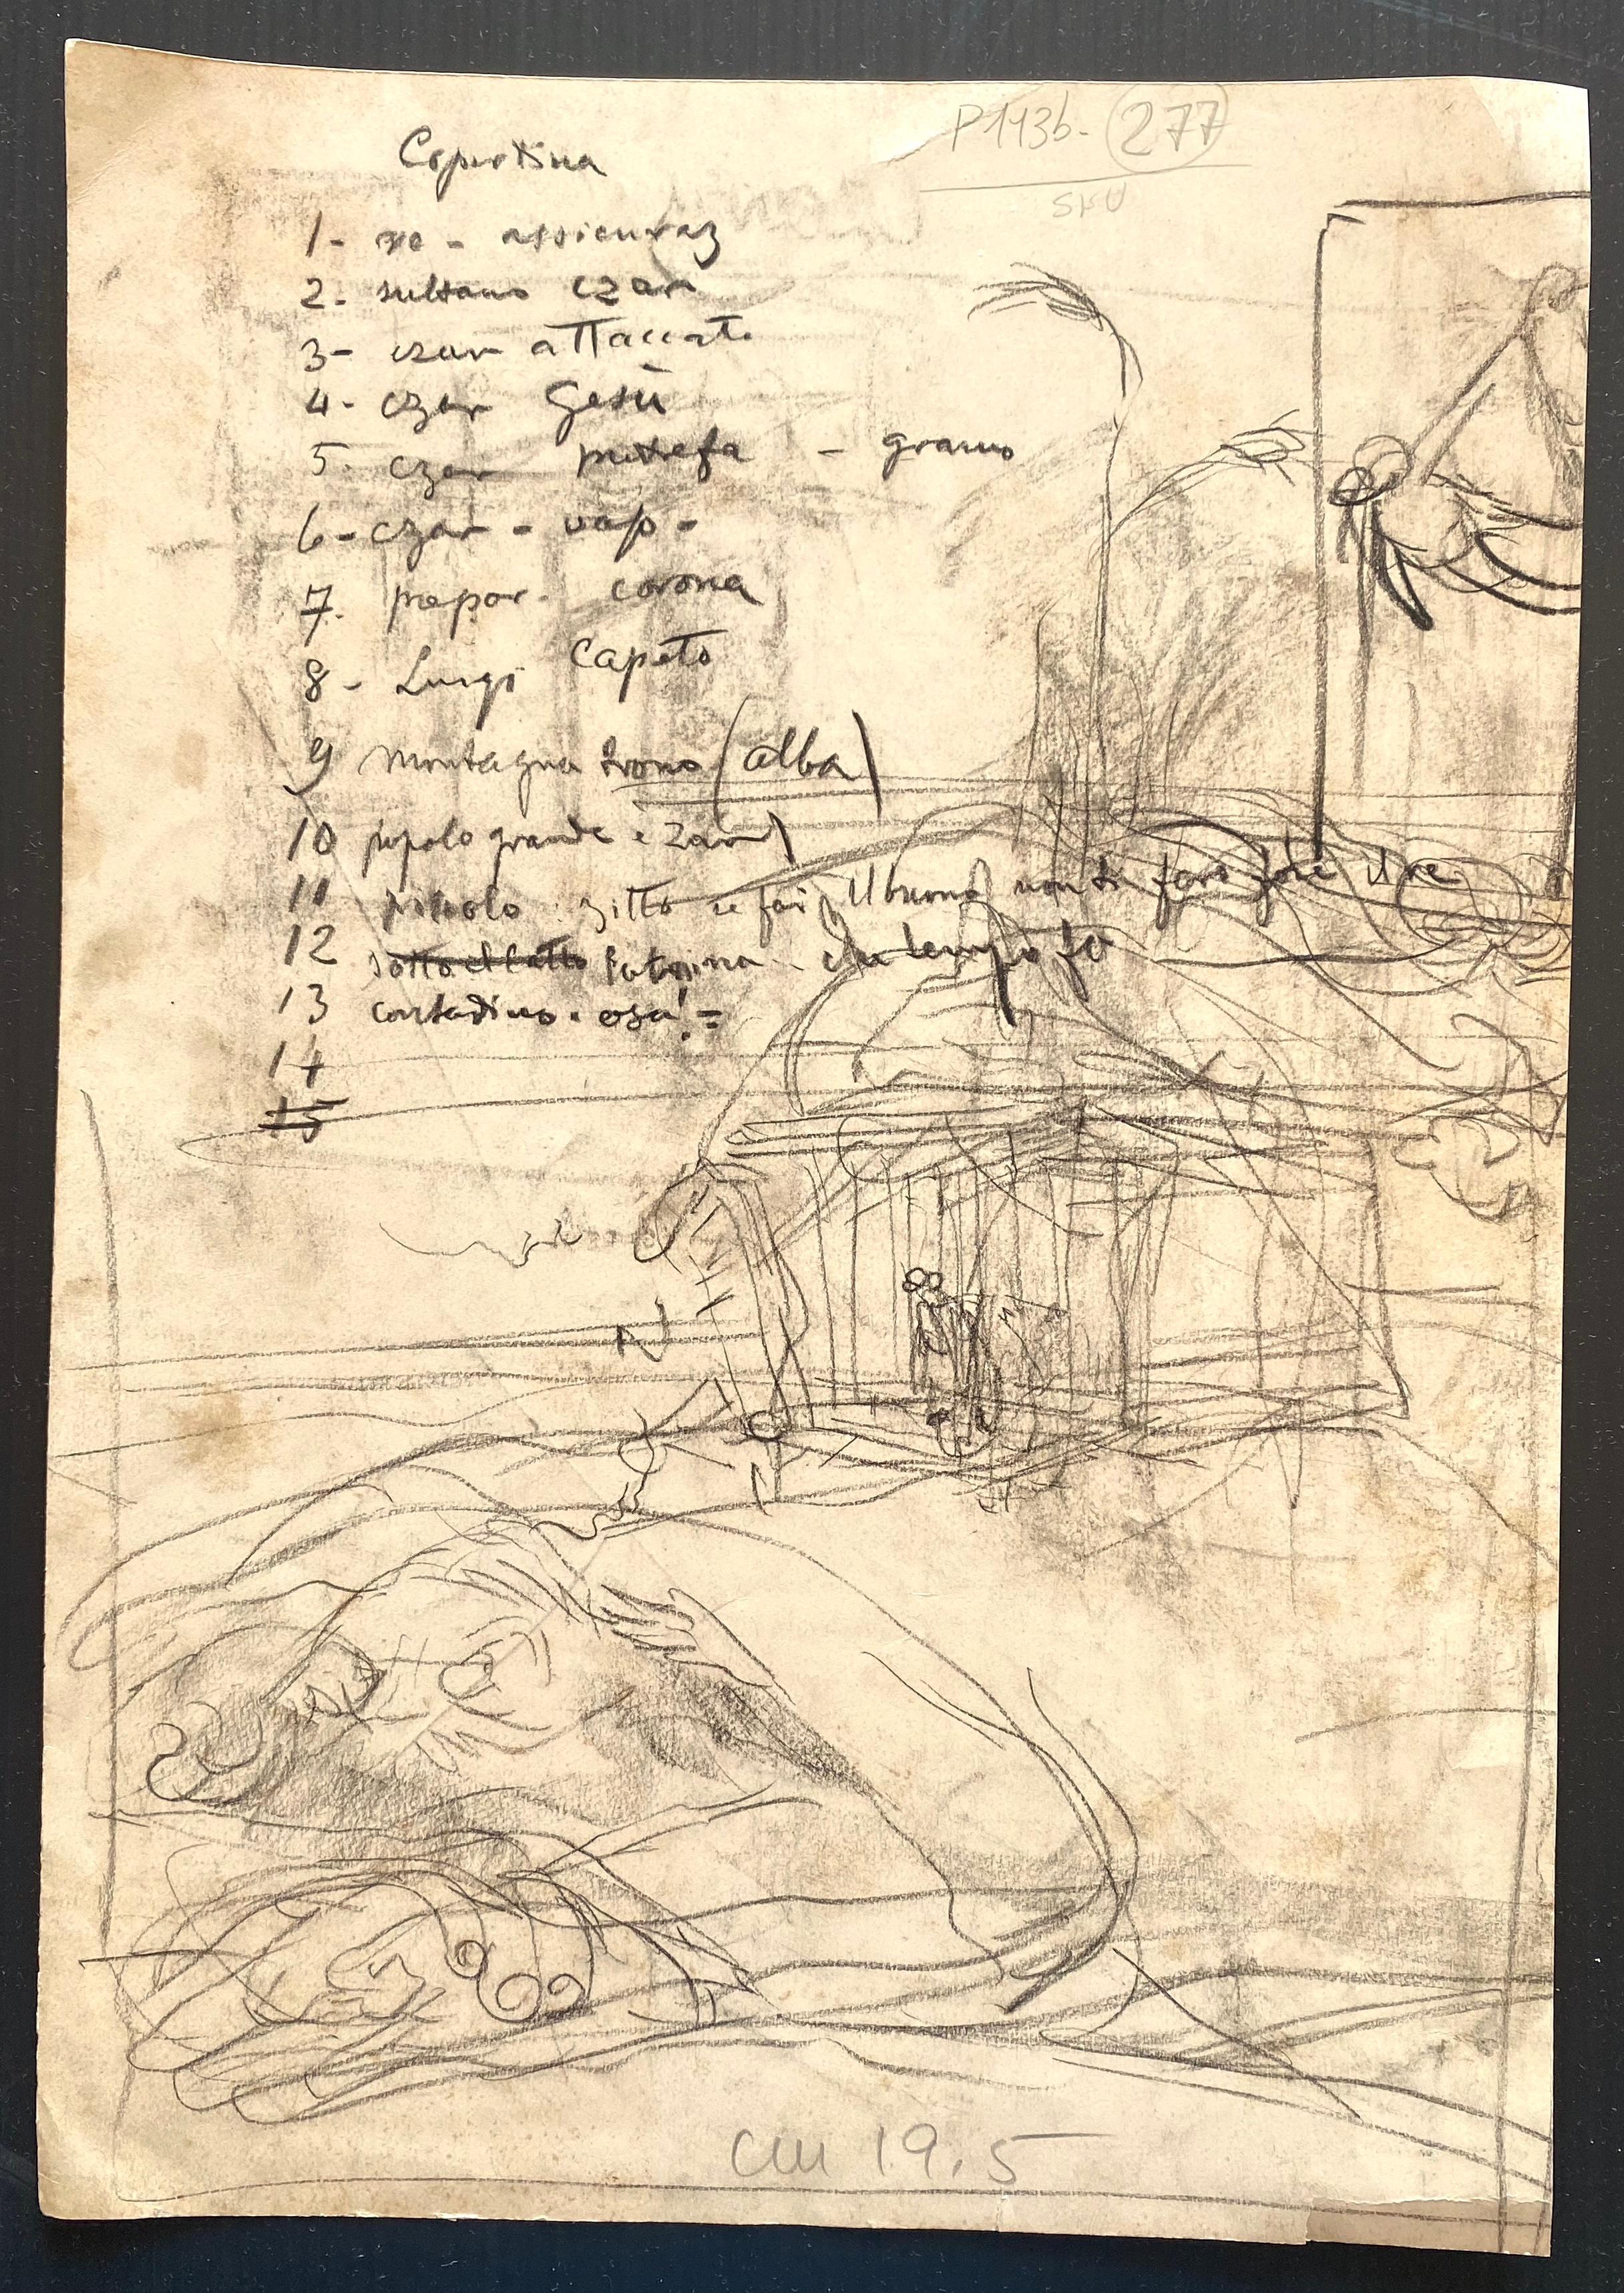 P193b- 277
Copertina
1- re - assicuraz
2- sultano czar
3- czar attaccato
4- czar Gesù
5- czar - grano
6- czar - vap -
7- prepar. corona
8- Luigi Capeto
9 montagna trono (alba)
10 popolo grande e Zar
11 piccolo zitto se fai il buono non ti farò fare il re
12 sotto il letto Caterina - che tempo fa
13 contadino - osa! =
14
15
cm 19.5